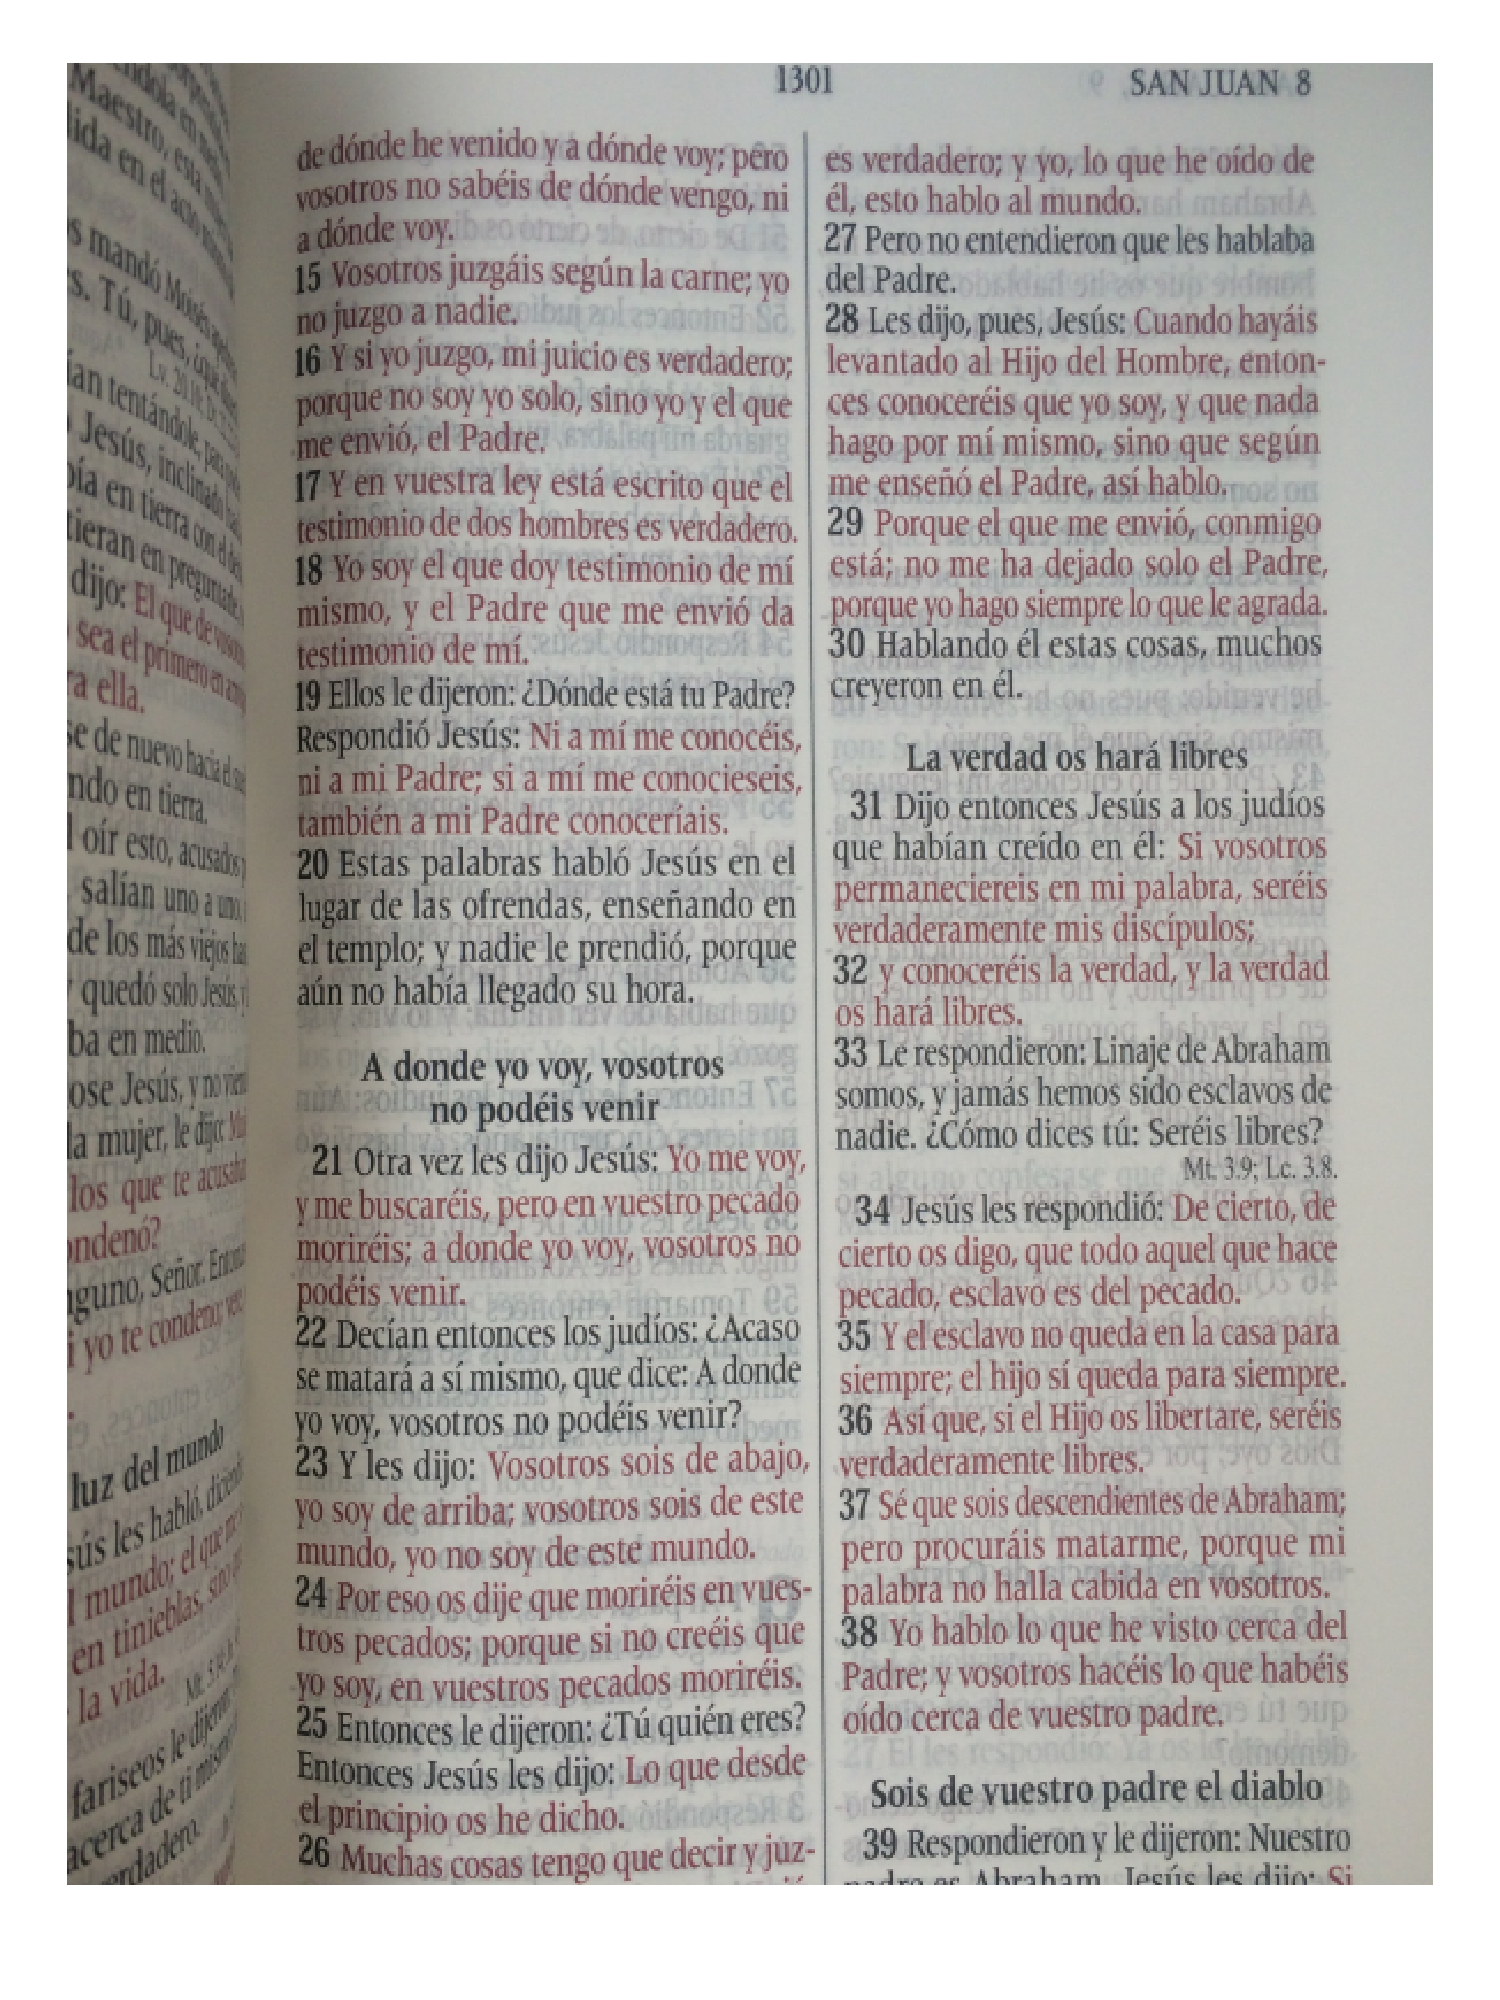 Maestro, esta
en el acto
mandó Moisés
Tú, pues,
tentándole, para
Jesús, inclinado
en tierra con el
en
dijo: El que de
sea el primero en
ella.
de nuevo hacia el
en tierra.
oír esto, acusados
salían uno a uno,
de los más viejos
quedó solo Jesús,
en medio.
Jesús, y no
la mujer, le dijo:
los que te
Señor.
yo te condeno;
luz del mundo
les habló,
mundo; el que
en tinieblas, sino
la vida.
fariseos le dijeron
acerca de ti
1301
SAN JUAN 8
de dónde he venido y a dónde voy; pero
vosotros no sabéis de dónde vengo, ni
a dónde voy.
15 Vosotros juzgáis según la carne; yo
no juzgo a nadie.
16 Y si yo juzgo, mi juicio es verdadero;
porque no soy yo solo, sino yo y el que
me envió, el Padre.
17 Y en vuestra ley está escrito que el
testimonio de dos hombres es verdadero.
18 Yo soy el que doy testimonio de mí
mismo, y el Padre que me envió da
testimonio de mí.
19 Ellos le dijeron: ¿Dónde está tu Padre?
Respondió Jesús: Ni a mí me conocéis,
ni a mi Padre; si a mí me conocieseis,
también a mi Padre conoceríais.
20 Estas palabras habló Jesús en el
lugar de las ofrendas, enseñando en
el templo; y nadie le prendió, porque
aún no había llegado su hora.
A donde yo voy, vosotros
no podéis venir
21 Otra vez les dijo Jesús: Yo me voy,
y me buscaréis, pero en vuestro pecado
moriréis; a donde yo voy, vosotros no
podéis venir.
22 Decían entonces los judíos: ¿Acaso
se matará a sí mismo, que dice: A donde
yo voy, vosotros no podéis venir?
23 Y les dijo: Vosotros sois de abajo,
yo soy de arriba; vosotros sois de este
mundo, yo no soy de este mundo.
24 Por eso os dije que moriréis en vues-
tros pecados; porque si no creéis que
yo soy, en vuestros pecados moriréis.
25 Entonces le dijeron: ¿Tú quién eres?
Entonces Jesús les dijo: Lo que desde
el principio os he dicho.
26 Muchas cosas tengo que decir y juz-
es verdadero; y yo, lo que he oído de
él, esto hablo al mundo.
27 Pero no entendieron que les hablaba
del Padre.
28 Les dijo, pues, Jesús: Cuando hayáis
levantado al Hijo del Hombre, enton-
ces conoceréis que yo soy, y que nada
hago por mí mismo, sino que según
me enseñó el Padre, así hablo.
29 Porque el que me envió, conmigo
está; no me ha dejado solo el Padre,
porque yo hago siempre lo que le agrada.
30 Hablando él estas cosas, muchos
creyeron en él.
La verdad os hará libres
31 Dijo entonces Jesús a los judíos
que habían creído en él: Si vosotros
permaneciereis en mi palabra, seréis
verdaderamente mis discípulos;
32 y conoceréis la verdad, y la verdad
os hará libres.
33 Le respondieron: Linaje de Abraham
somos, y jamás hemos sido esclavos de
nadie. ¿Cómo dices tú: Seréis libres?
Mt. 3.9; Lc. 3.8.
34 Jesús les respondió: De cierto, de
cierto os digo, que todo aquel que hace
pecado, esclavo es del pecado.
35 Y el esclavo no queda en la casa para
siempre; el hijo sí queda para siempre.
36 Así que, si el Hijo os libertare, seréis
verdaderamente libres.
37 Sé que sois descendientes de Abraham;
pero procuráis matarme, porque mi
palabra no halla cabida en vosotros.
38 Yo hablo lo que he visto cerca del
Padre; y vosotros hacéis lo que habéis
oído cerca de vuestro padre.
Sois de vuestro padre el diablo
39 Respondieron y le dijeron: Nuestro
padre es Abraham. Jesús les dijo: Si